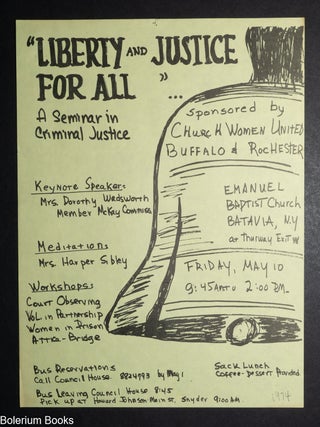 "LIBERTY AND JUSTICE
FOR ALL" ...
A Seminar in
Criminal Justice
sponsored by
CHURCH WOMEN UNITED
BUFFALO & ROCHESTER
Keynote Speaker:
Mrs. Dorothy Wadsworth
Member McKay Commission
EMANUEL
BAPTIST CHURCH
BATAVIA, N.Y
at Thruway Exit
Meditations
Mrs. Harper Sibley
FRIDAY, MAY 10
9:45 AM TO 2:00 PM.
Workshops:
Court Observing
Vol. in Partnership
Women in Prison
Attica-Bridge
Bus Reservations
Call Council House 8824793 by May 1
Sack Lunch
Coffee-Dessert Provided
Bus Leaving Council House 8:45
Pick up at Howard Johnson Main St. Snyder 9:00 AM
1974
Bolerium Books